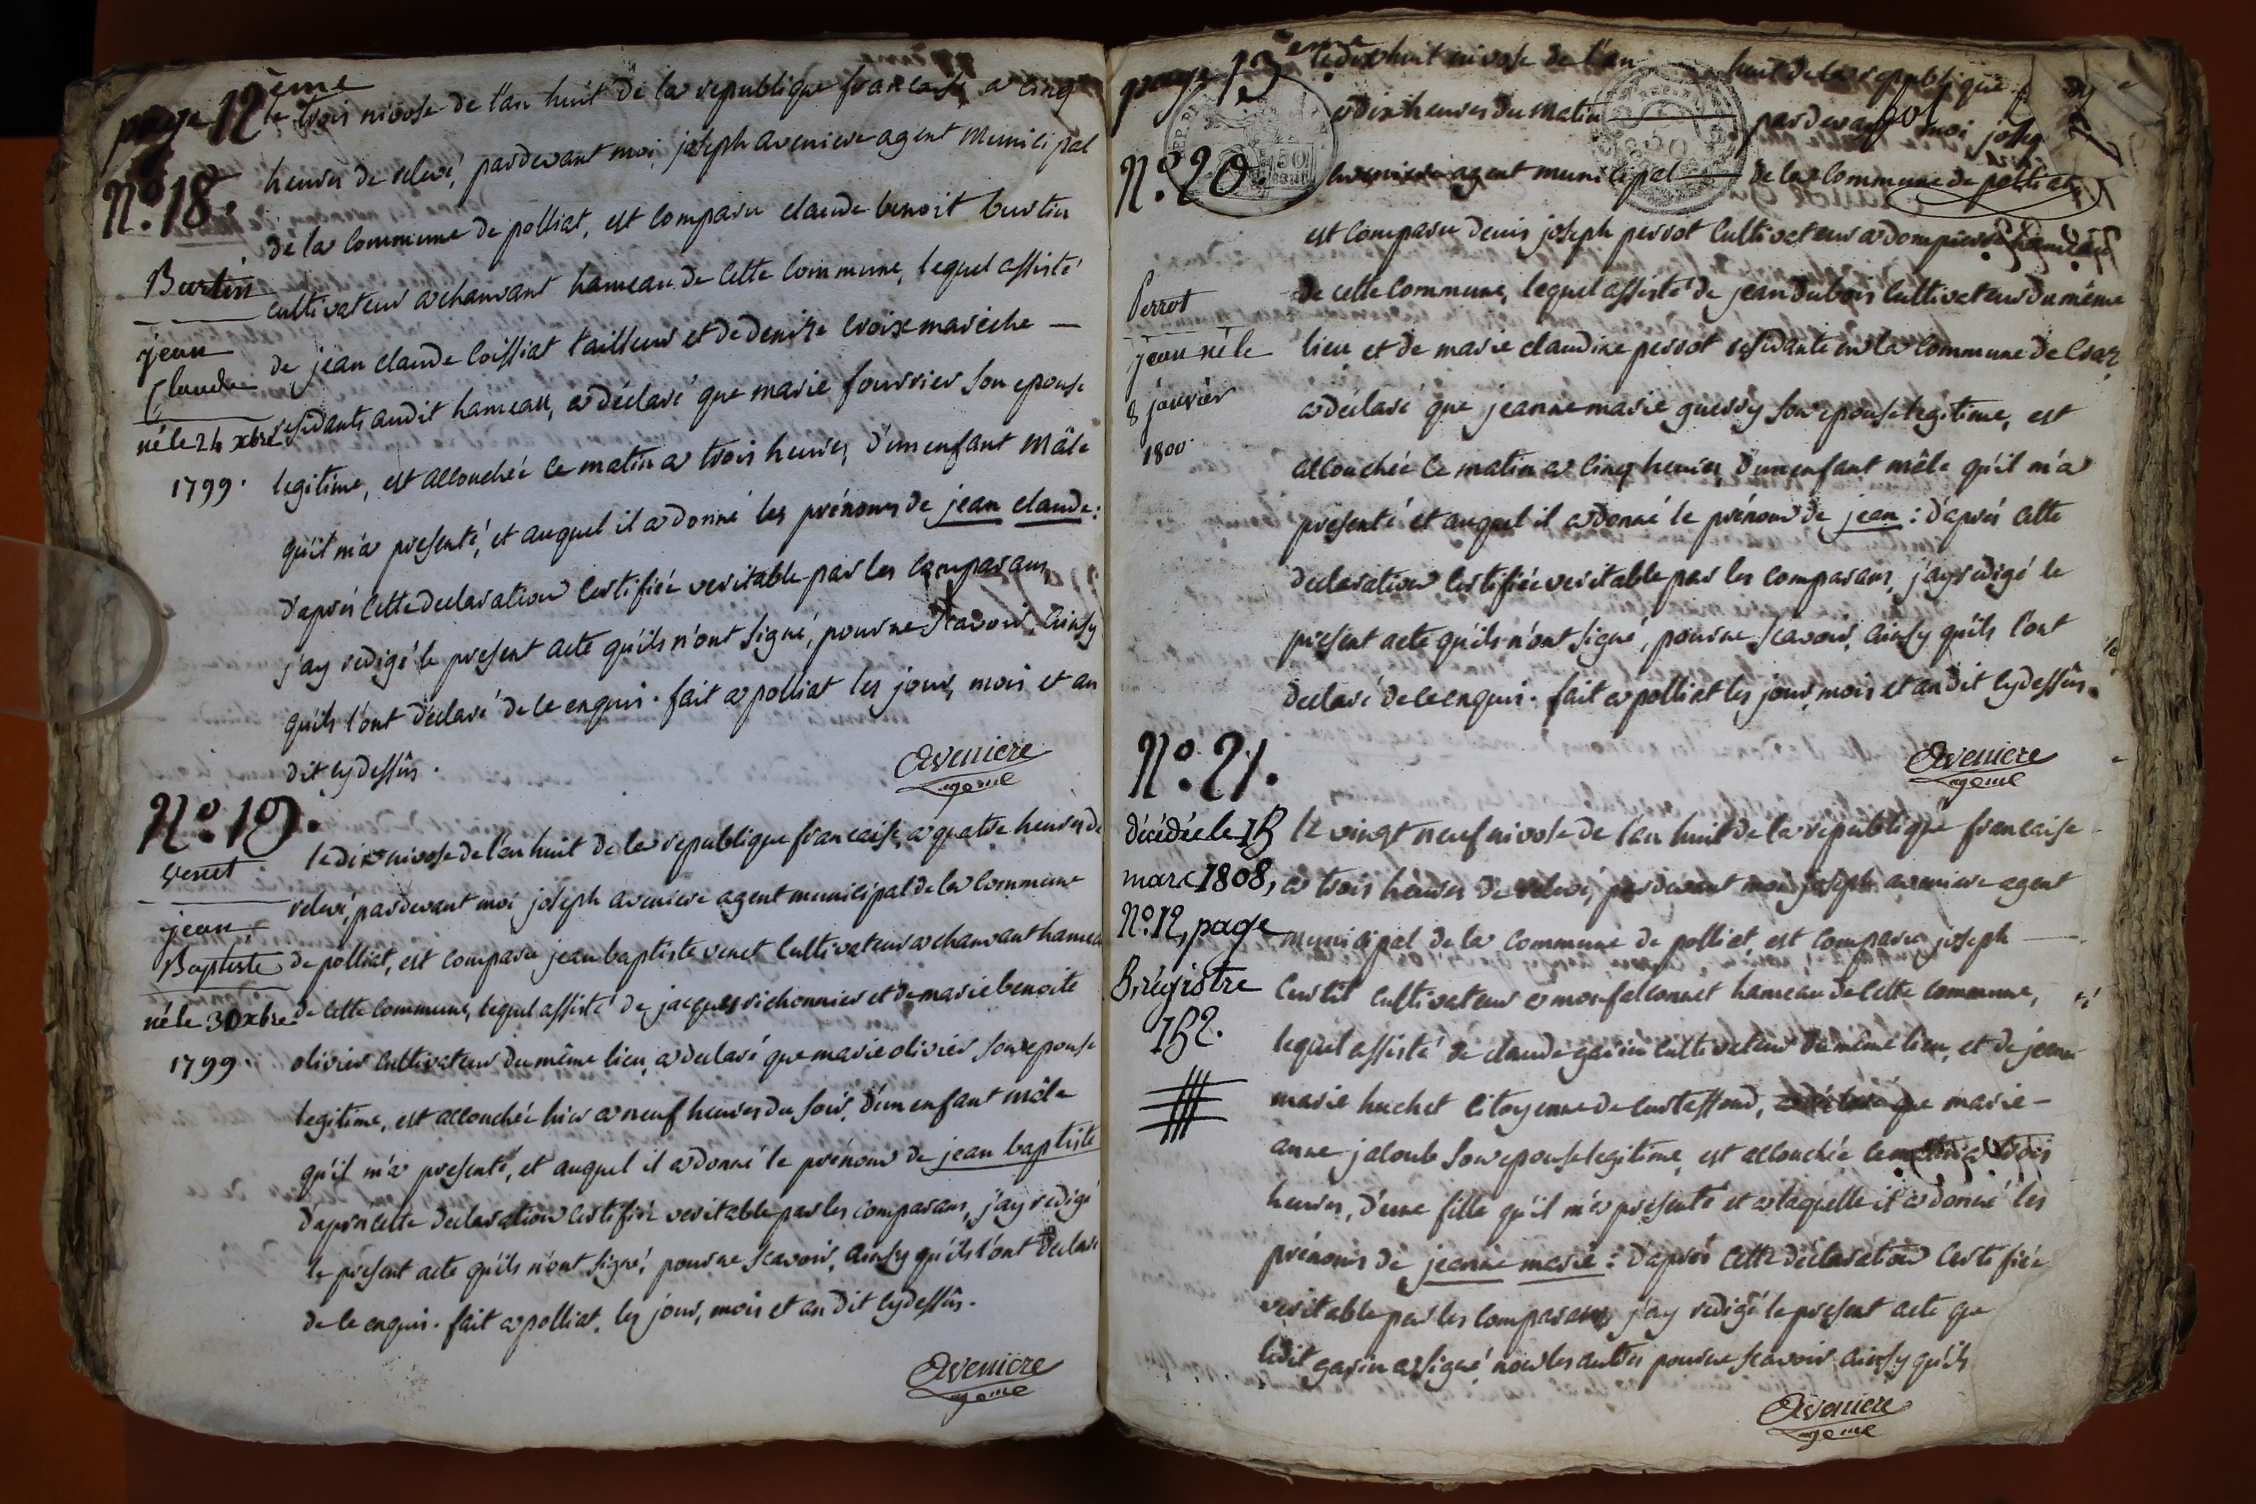 page 12ème
le trois nivose de l'an huit de la republique francaise, a cinq
heures de relevé, pardevant moi joseph aveniere agent municipal
de la commune de polliat, est comparu claude benoit burtin
cultivateur a chanvant hameau de cette commune, lequel assisté
de jean claude loissiat tailleur et de denize croix marêche —
residants audit hameau, a déclaré que marie fourrier son epouse
legitime, est accouchée ce matin a trois heures, d'un enfant mâle
qu'il m'a presenté, et auquel il a donné les prénoms de jean claude:
d'après cette declaration certifiée veritable par les comparans
j'ay redigé le present acte qu'ils n'ont signé, pour ne scavoir ainsy
qu'ils l'ont déclaré de ce enquis. fait a polliat les jour, mois et an
dit cy dessûs.
Aveniere
agent
N.º 18.
Burtin
jean
Claude
né le 24 xbre
1799.
N.º 19.
venet
jean
Baptiste
né le 30 xbre
1799.
le dix nivose de l'an huit de la republique francaise, a quatre heures de
relevé, pardevant moi joseph aveniere agent municipal de la commune
de polliat, est comparu jean baptiste venet cultivateur a chanvant hameau
de cette commune, lequel assisté de jacques richonnier et de marie benoite
olivier cultivateur du même lieu, a declaré que marie olivier son epouse
legitime, est accouchée hier a neuf heures du soir, d'un enfant mâle
qu'il m'a presenté, et auquel il a donné le prénom de jean baptiste
d'après cette declaration certifiée veritable par les comparans, j'ay redigé
le présent acte qu'ils n'ont signé, pour ne scavoir, ainsy qu'ils l'ont declaré
de ce enquis. fait a polliat, les jour, mois et an dit cy dessûs.
Aveniere
agent
page 13ème
le dix huit nivose de l'an huit de la republique
a dix heures du matin — pardevant moi joseph
aveniere agent municipal — de la commune de polliat
est comparu denis joseph perrot cultivateur a dompierre hameau
de cette commune, lequel assisté de jean dubois cultivateur du même
lieu et de marie claudine perrot residante en la commune de Craz
a déclaré que jeanne marie guerry son epouse legitime, est
accouchée ce matin a cinq heures, d'un enfant mâle qu'il m'a
presenté et auquel il a donné le prénom de jean: d'après cette
declaration certifiée veritable par les comparans, j'ay redigé le
present acte qu'ils n'ont signé, pour ne scavoir, ainsy qu'ils l'ont
declaré de ce enquis. fait a polliat les jour, mois et an dit cy dessûs.
Aveniere
agent
N.º 20.
Perrot
jean né le
8 janvier
1800.
N.º 21.
décédée le 15
mars 1808,
N.º 12, page
5, régistre
152.
le vingt neuf nivose de l'an huit de la republique francaise
a trois heures de relevé, pardevant moi joseph aveniere agent
municipal de la commune de polliat, est comparu joseph —
curtil cultivateur a monfalconnet hameau de cette commune,
lequel assisté de claude garin cultivateur du même lieu, et de jeanne
marie huchet citoyenne de curtaffond, a déclaré que marie —
anne jaloub son epouse legitime, est accouchée ce matin a trois
heures, d'une fille qu'il m'a presenté et a laquelle il a donné les
prénoms de jeanne marie: d'après cette déclaration certifiée
veritable par les comparans, j'ay redigé le present acte que
ledit garin a signé, non les autres pour ne scavoir ainsy qu'ils
Aveniere
agent